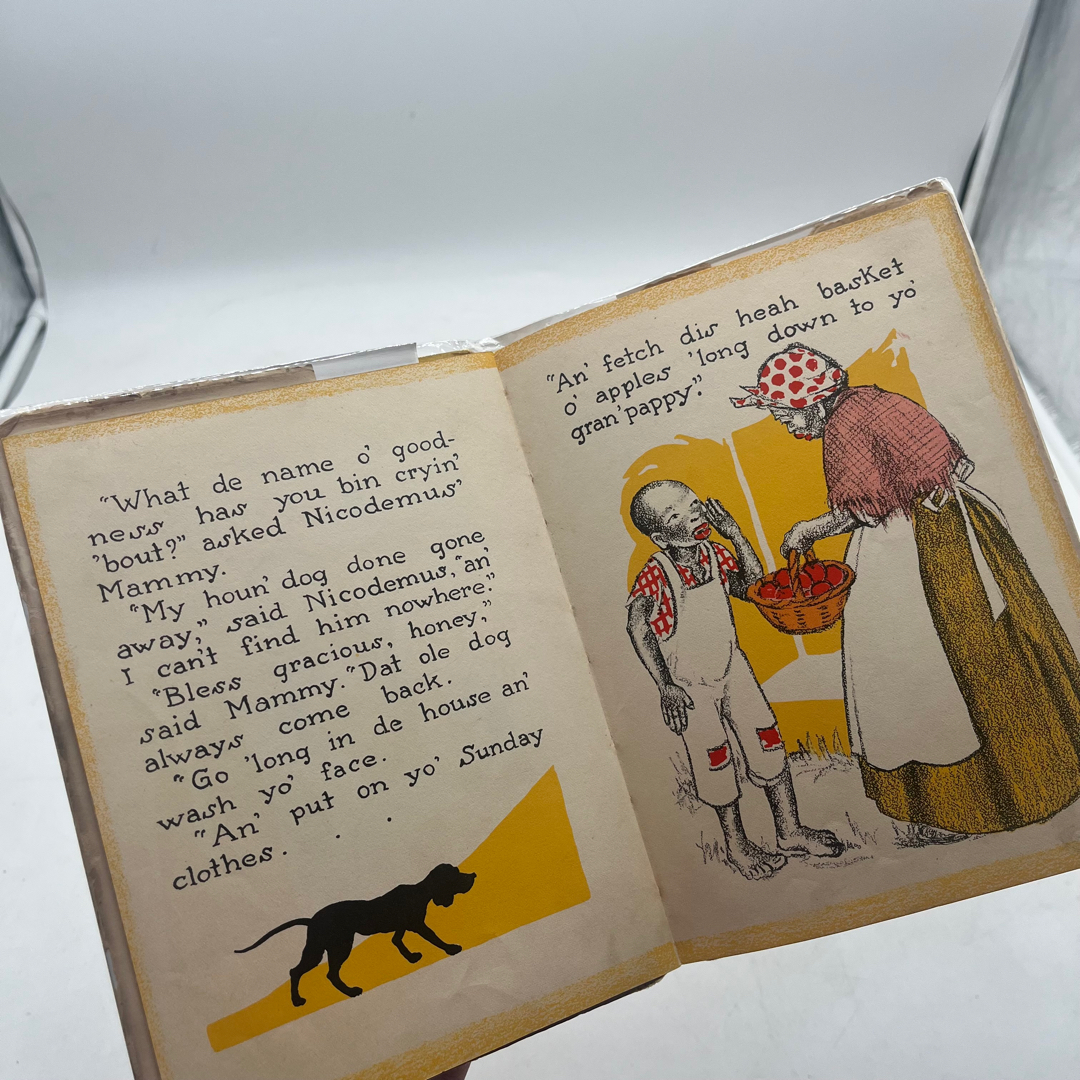 "What de name o' good-
ness has you bin cryin'
'bout?" asked Nicodemus'
Mammy.
"My houn' dog done gone
away," said Nicodemus, "an'
I can't find him nowhere."
"Bless gracious, honey,"
said Mammy. "Dat ole dog
always come back.
"Go 'long in de house an'
wash yo' face.
"An' put on yo' Sunday
clothes.
"An' fetch dis heah basket
o' apples 'long down to yo'
gran'pappy."